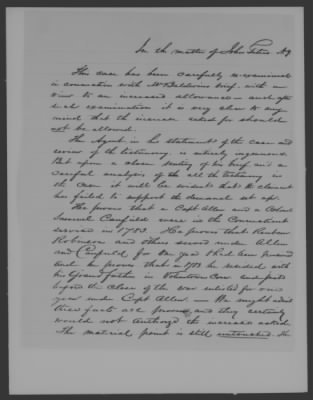 In the matter of John Peters
This case has been carefully re-examined
in connection with Mr Baldwins brief, with a
view to an increased allowance — and after
that examination it is very clear to my
mind that the increase asked for should
not be allowed.
The Agent in his statement of the case and
review of the testimony, is entirely ingenuous.
But upon a close scrutiny of his brief and a
careful analysis of the all the testimony in
the case it will be evident that the claimant
has failed to support the demand set up.
He proves that a Capt Allen and a Colonel
Samuel Canfield were in the Connecticut
service in 1783. He proves that Reuben
Robinson and others served under Allen
and Canfield for one year & had been pensioned
and he proves that in 1783 he resided with
his Grand father in Voluntown Con and just
before the close of the war enlisted for one
year under Capt Allen. — We might admit
these facts are proven, and they certainly
would not authorize the increase asked.
The material point is still untouched. He